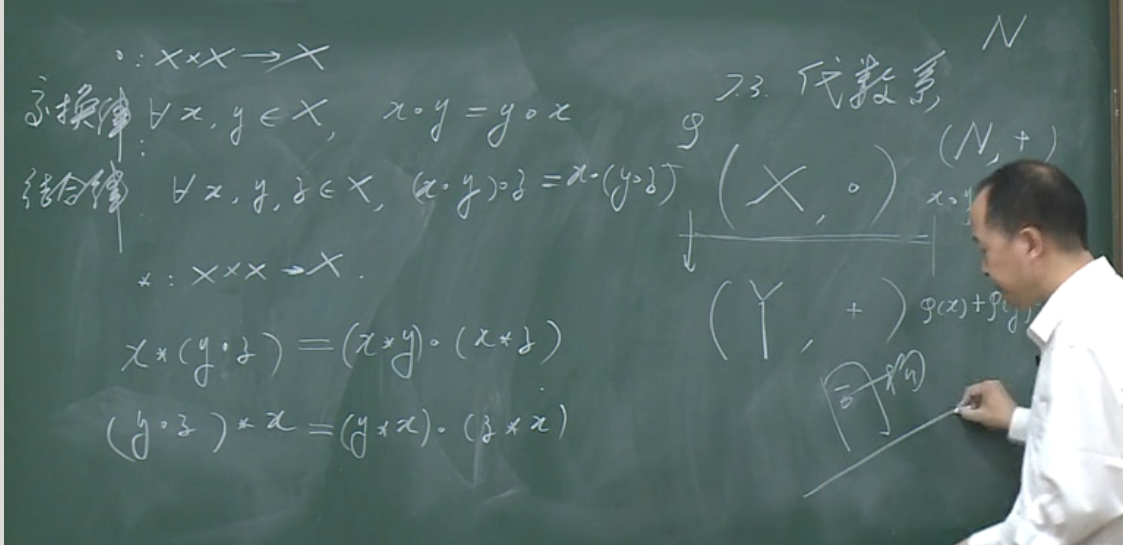 ∘: X×X→X
交换律: ∀x, y∈X, x∘y=y∘x
结合律 ∀x, y, z∈X, (x∘y)∘z=x∘(y∘z)
*: X×X→X.
x*(y∘z)=(x*y)∘(x*z)
(y∘z)*x=(y*x)∘(z*x)
N
7.3. 代数系
(N, +)
φ
(X, ∘)
x∘y
(Y, +)
φ(x)+φ(y)
同构